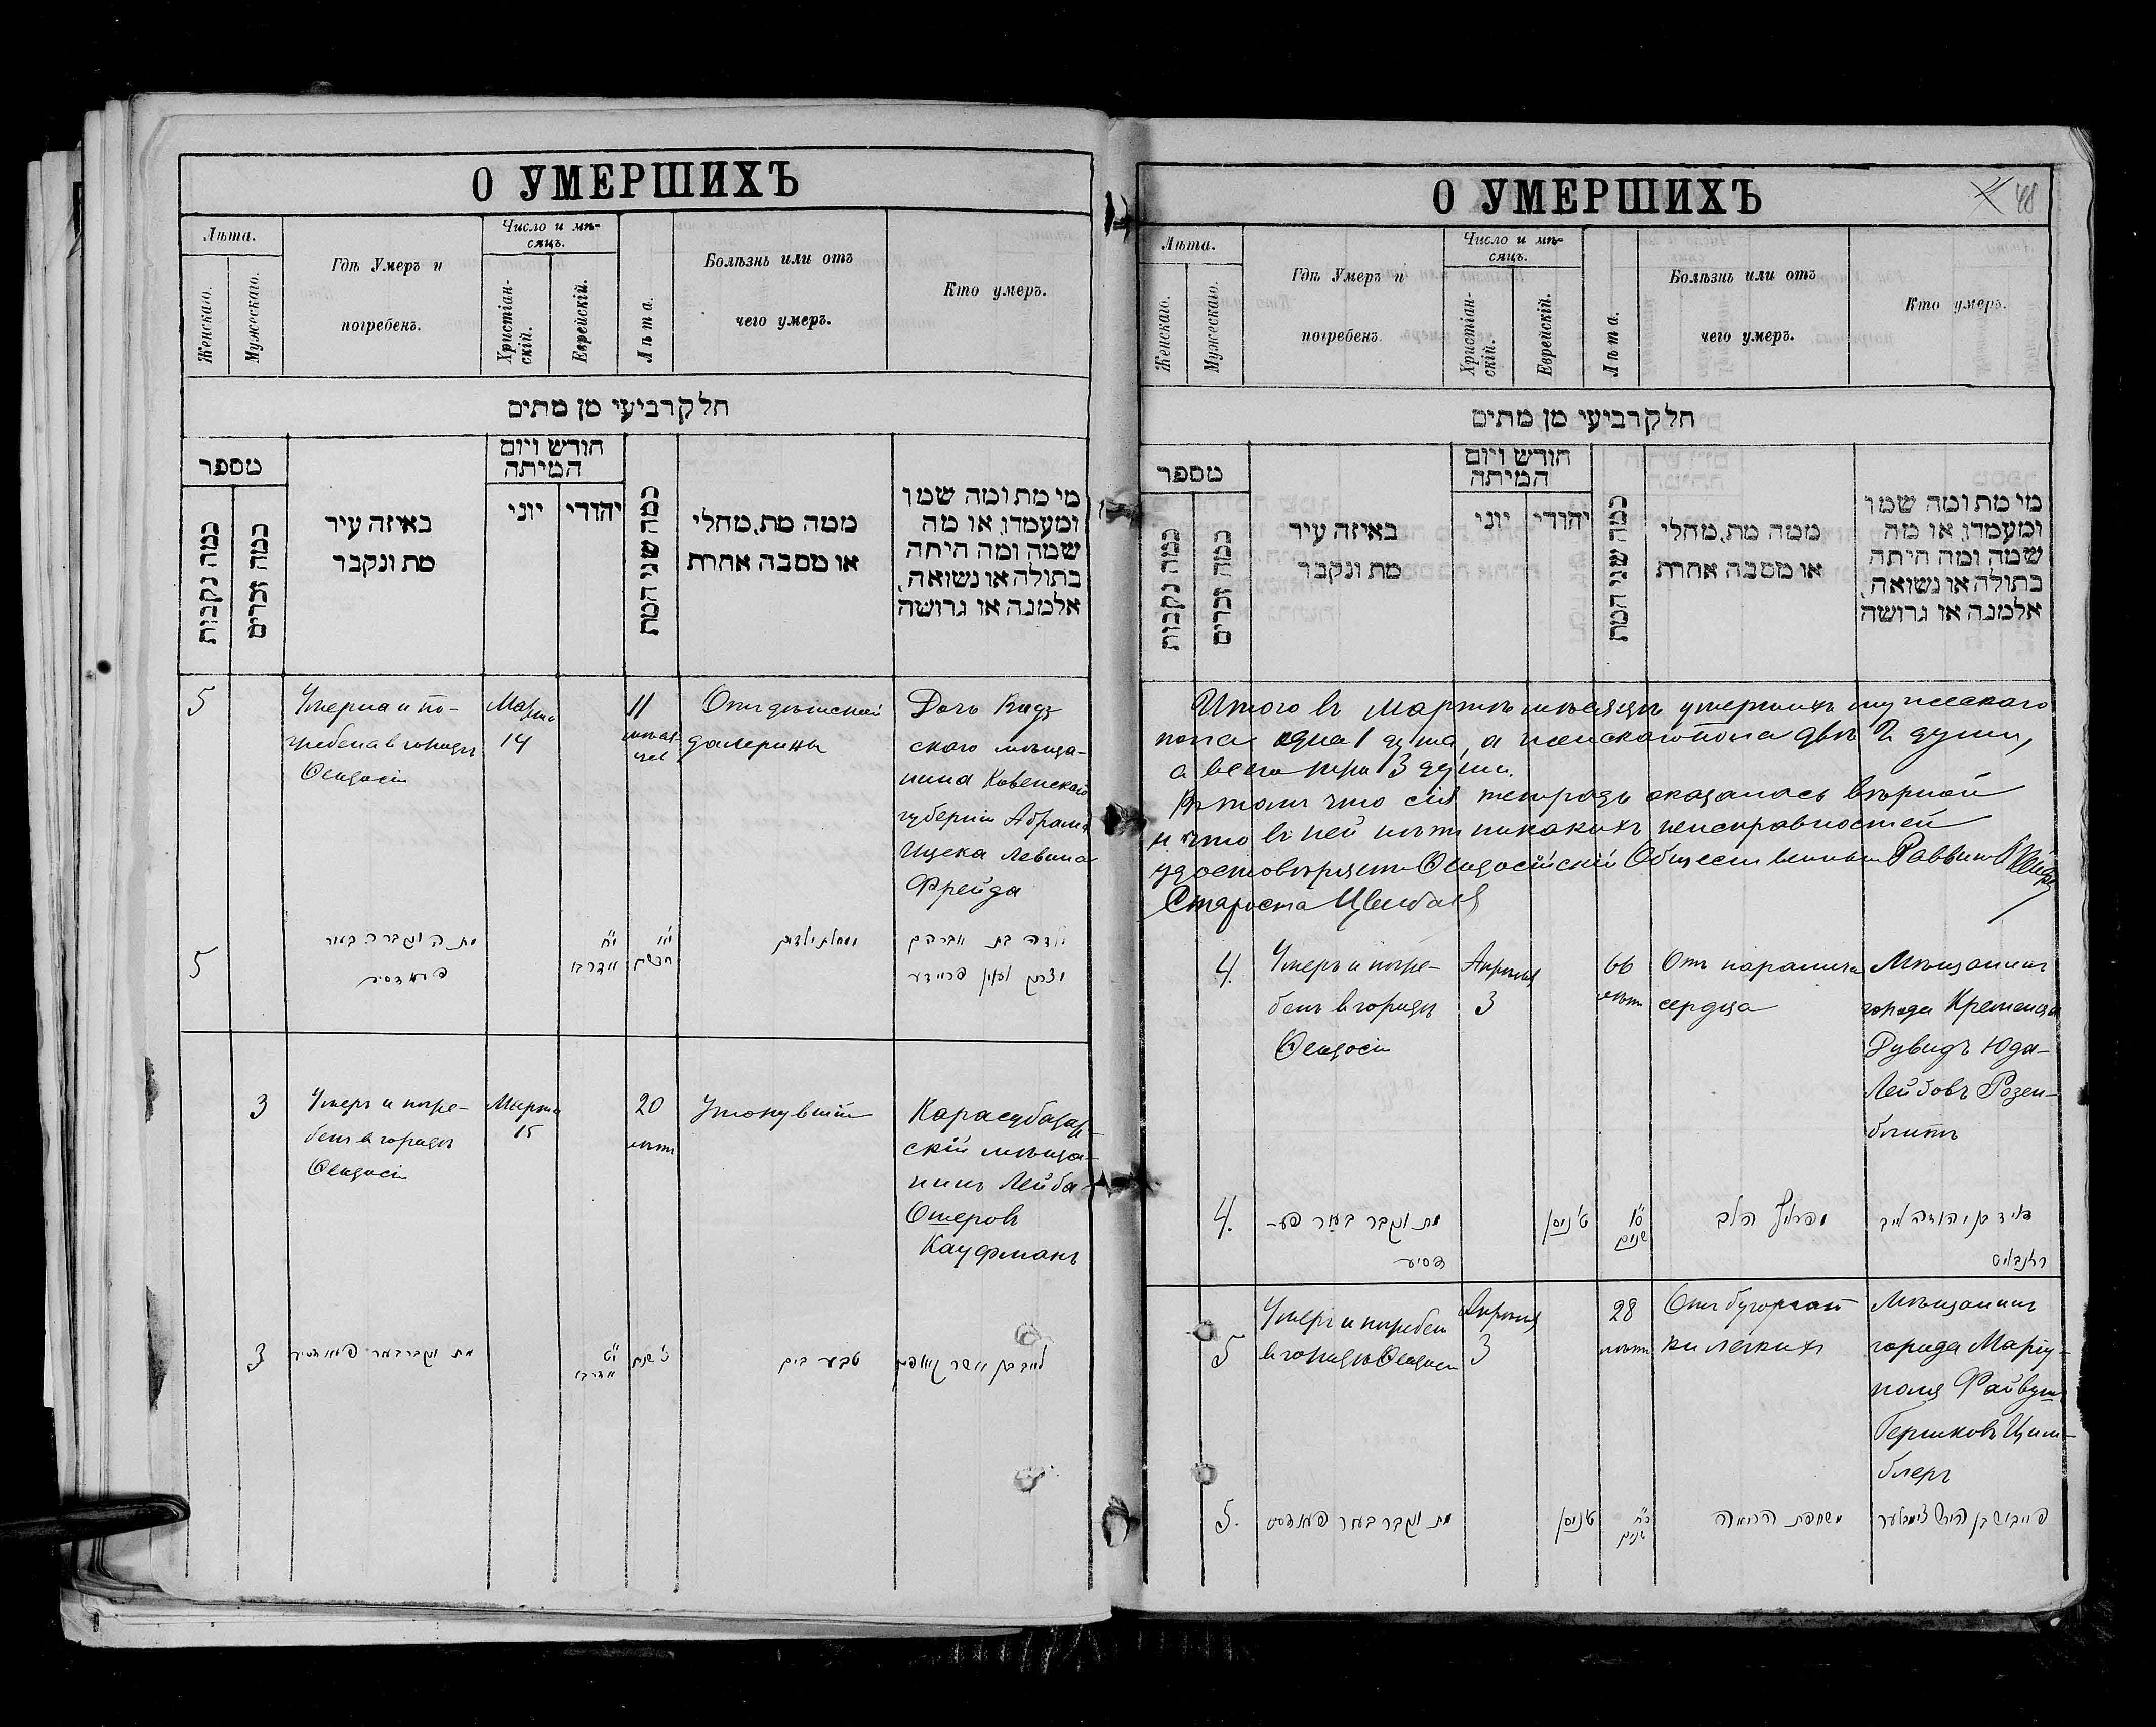 О УМЕРШИХЪ
Лѣта.
Женскаго.
Мужескаго.
Гдѣ Умеръ и
погребенъ.
Число и мѣ-
сяцъ.
Христіан-
скій.
Еврейскій.
Лѣта.
Болѣзнь или отъ
чего умеръ.
Кто умеръ.
חלק רביעי מן מתים
מספר
כמה נקבות
כמה זכרים
באיזה עיר
מת ונקבר
חודש ויום
המיתה
יוני
יהודי
כמה שני המת
ממה מת, מחלי
או מסבה אחרת
מי מת ומה שמו
ומעמדו, או מה
שמה ומה היתה
בתולה או נשואה,
אלמנה או גרושה
5
Умерла и по-
гребена в городѣ
Ѳеодосіи
Марта
14
11
мѣся-
цев
От дѣтской
Дочь Видз
скаго мѣща-
нина Ковенской
губерніи Абрама
Ицека Левина
Фрейда
5
מתה ונקברה בעיר
י״ח
אדר ב׳
י״א
חדשים
ממחלת ילדים
ילדה בת אברהם
יצחק לעווין פריידע
3
Умеръ и погре-
бенъ в городѣ
Ѳеодосіи
Марта
15
20
лѣтъ
Утонувшій
Карасубазар-
скій мѣща-
нинъ Лейба-
Ошеровъ
Кауфманъ
3
מת ונקבר בעיר
י״ט
אדר ב׳
כ׳ שנים
טבע בים
לייב בן אשר קויפמן
О УМЕРШИХЪ
48
Лѣта.
Женскаго.
Мужескаго.
Гдѣ Умеръ и
погребенъ.
Число и мѣ-
сяцъ.
Христіан-
скій.
Еврейскій.
Лѣта.
Болѣзнь или отъ
чего умеръ.
Кто умеръ.
חלק רביעי מן מתים
מספר
כמה נקבות
כמה זכרים
באיזה עיר
מת ונקבר
חודש ויום
המיתה
יוני
יהודי
כמה שני המת
ממה מת, מחלי
או מסבה אחרת
מי מת ומה שמו
ומעמדו, או מה
שמה ומה היתה
בתולה או נשואה,
אלמנה או גרושה
Итого въ Мартѣ мѣсяцѣ умершихъ мужескаго
пола одна 1 душа, а женскаго пола двѣ 2 души,
а всего три 3 души.
Въ томъ что сія тетрадь оказалась вѣрной
и что въ ней нѣтъ никакихъ неисправностей
удостовѣряетъ Ѳеодосійскій Общественный Раввинъ
Староста
4.
Умеръ и погре-
бенъ в городѣ
Ѳеодосіи
Апрѣля
3
66
лѣтъ
Отъ паралича
сердца
Мѣщанинъ
города Кременца
Дувидъ Юда-
Лейбовъ Розен-
блитъ
4.
מת ונקבר בעיר
ט׳ ניסן
ס״ו
שנים
הלב
דוד בן יהודה לייב
5
Умеръ и погребен
в городѣ Ѳеодосіи
Апрѣля
3
28
лѣтъ
Отъ бугорчат
ки легкихъ
Мѣщанинъ
города Маріу-
поля Файвуш
Гершковъ Цим-
блеръ
5.
מת ונקבר בעיר
ט׳ ניסן
כ״ח
שנים
משחפת הריאה
פייבוש בן הירש צימבלער